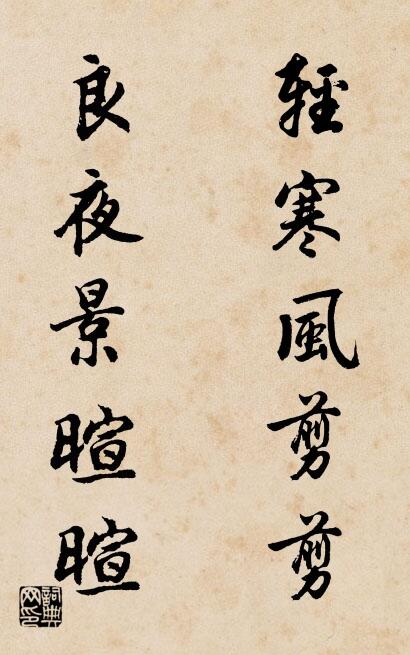 輕寒風剪剪
良夜景暄暄
詞典网印